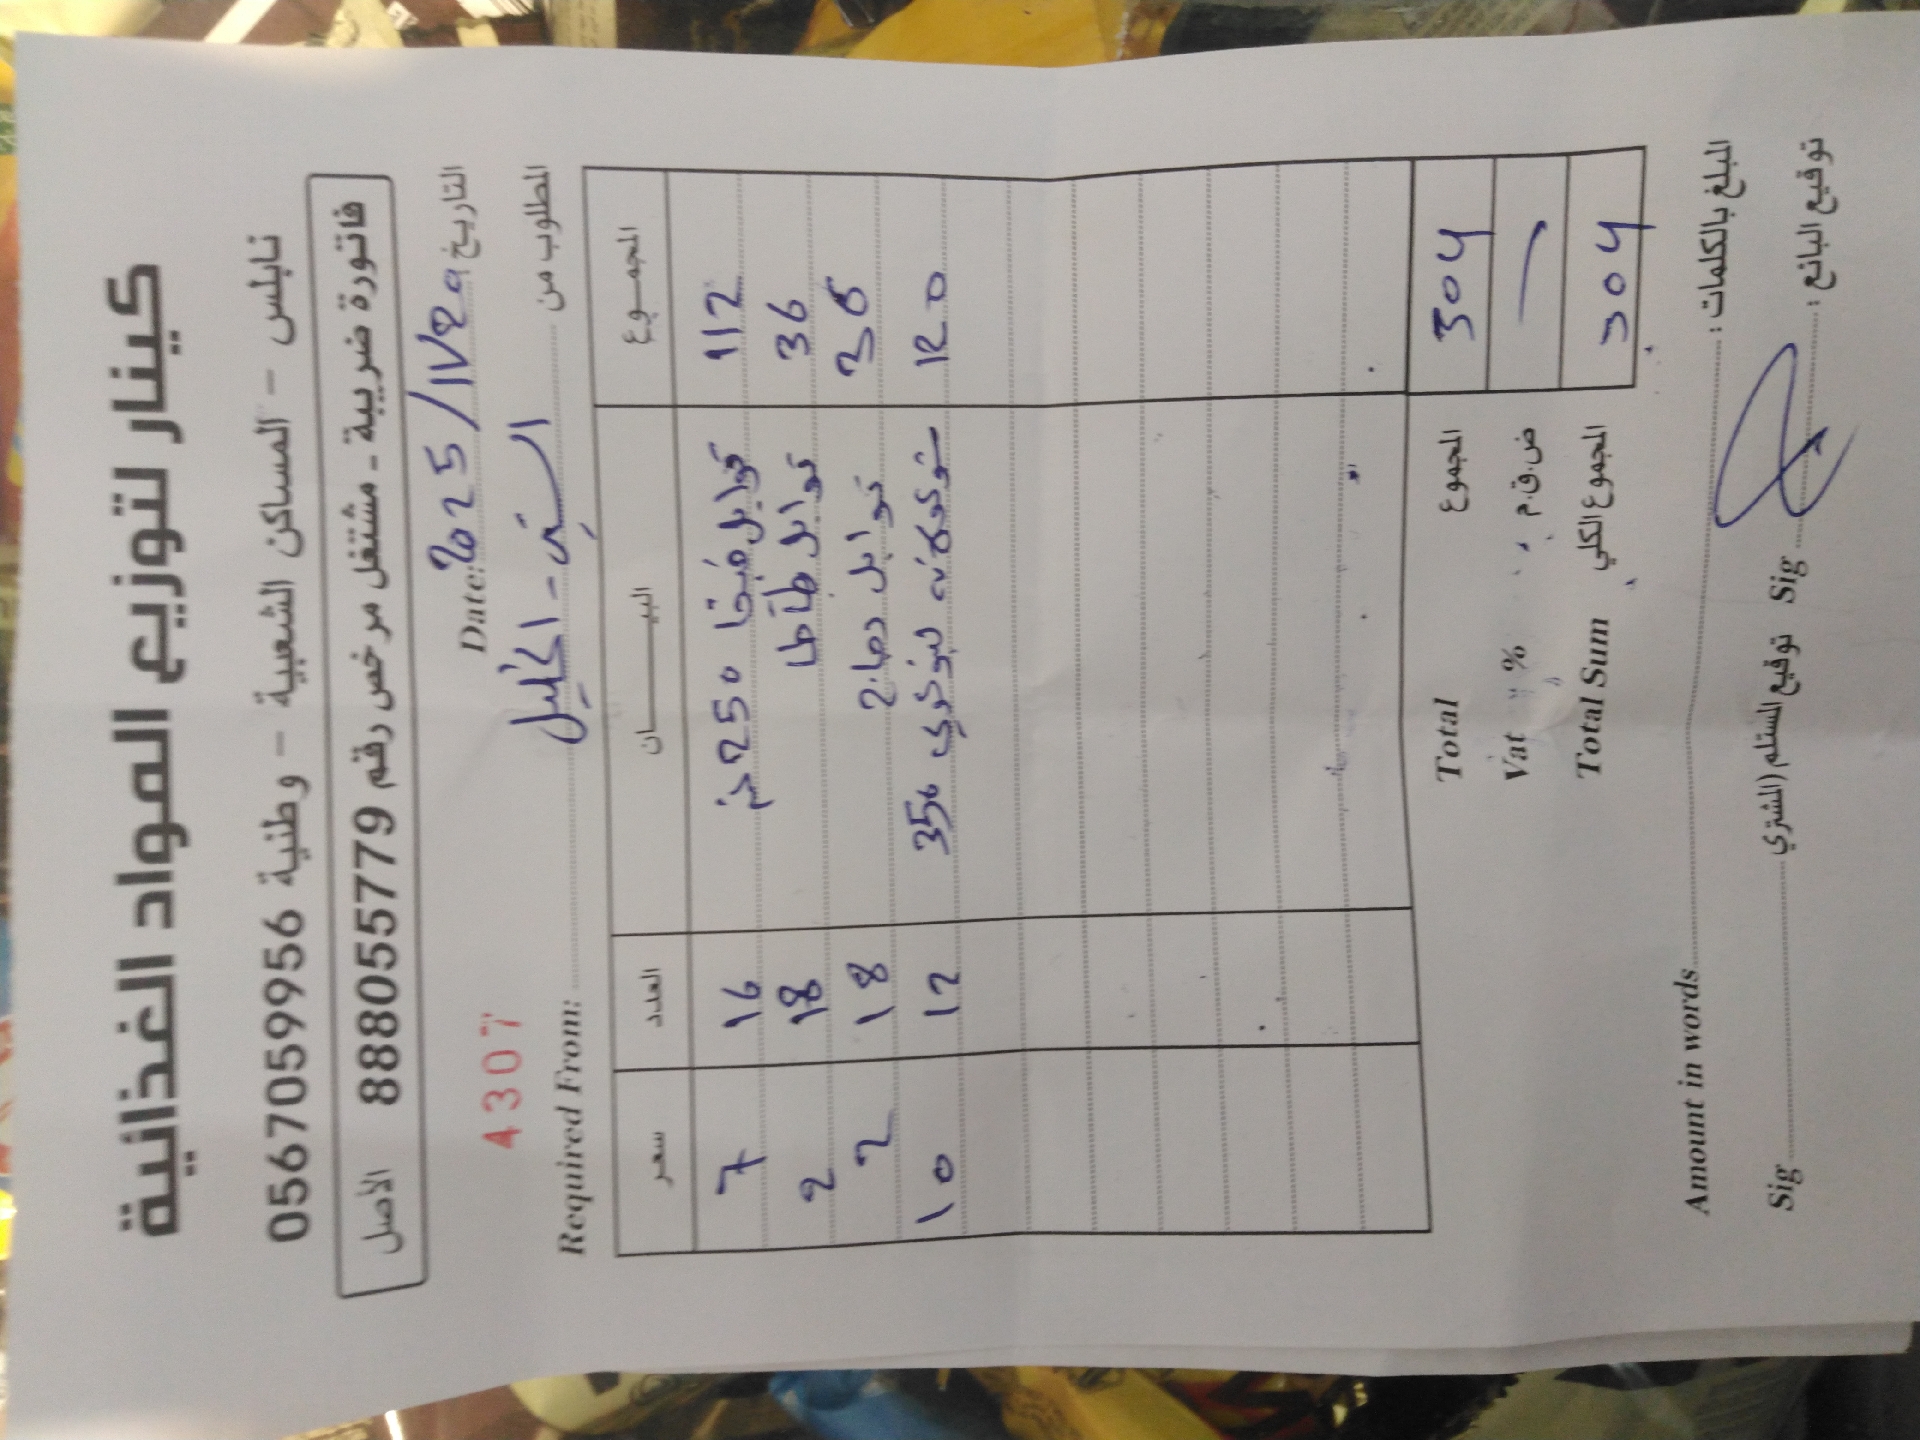 كينار لتوزيع المواد الغذائية
نابلس - المساكن الشعبية - وطنية 0567059956
فاتورة ضريبية - مشتغل مرخص رقم 888055779 الأصل
التاريخ Date: 2025/
4307
المطلوب من Required From: الخليل
المجموع البيـــــــان العدد سعر
112 توابل 250 16 7
36 توابل 18 2
36 توابل دجاج 18 2
120 350 12 10
Total المجموع 304
Vat % ض.ق.م —
Total Sum المجموع الكلي 304
Amount in words المبلغ بالكلمات :
Sig توقيع المستلم (المشتري Sig توقيع البائع :